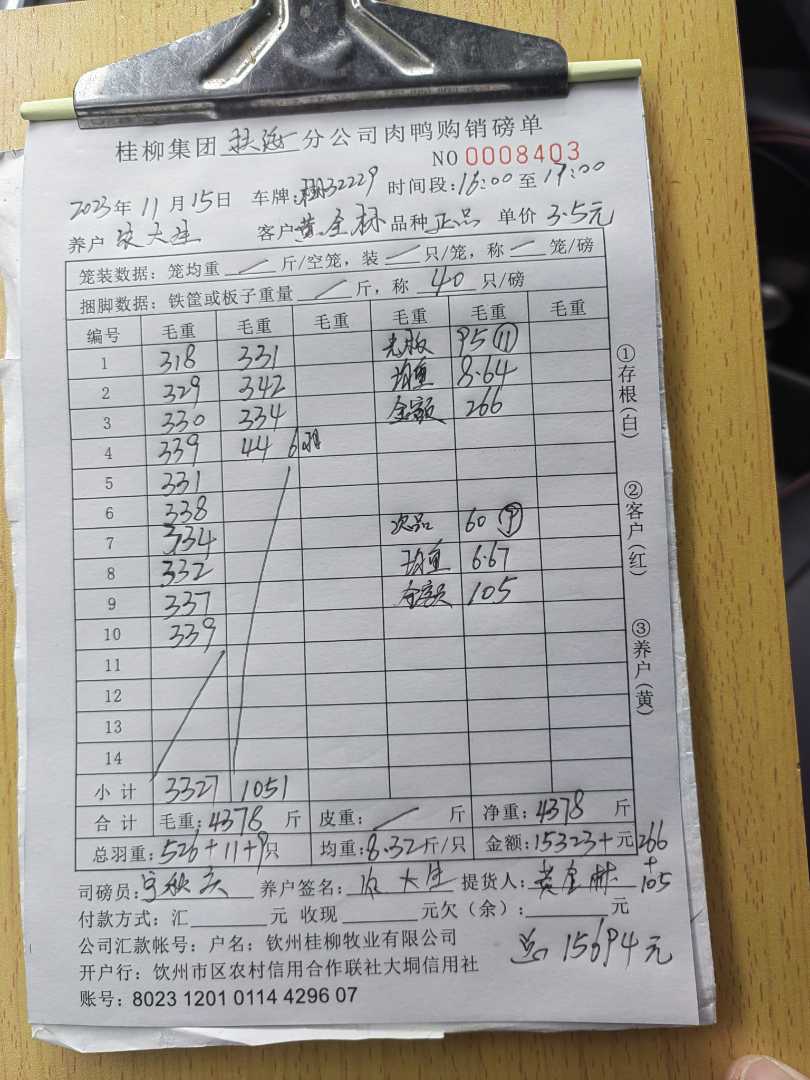 桂柳集团 扶绥 分公司肉鸭购销磅单
NO 0008403
2023年 11月 15日 车牌: 32229 时间段: 16:00 至 19:00
养户 大生 客户 黄全林 品种 正品 单价 3.5元
笼装数据: 笼均重 / 斤/空笼, 装 / 只/笼, 称 / 笼/磅
捆脚数据: 铁筐或板子重量 / 斤, 称 40 只/磅
编号 毛重 毛重 毛重 毛重 毛重 毛重
1 318 331 光板 95 ⑪
2 329 342 均重 8.64
3 330 334 金额 266
4 339 44 6羽
5 331
6 338
7 334 次品 60 ⑨
8 332 均重 6.67
9 337 金额 105
10 339
11
12
13
14
小计 3327 1051
合计 毛重: 4378 斤 皮重: / 斤 净重: 4378 斤
总羽重: 526+11+9只 均重: 8.32斤/只 金额: 15323+元 266
+
105
司磅员: 养户签名: 大生 提货人: 黄全林
付款方式: 汇 元 收现 元欠(余): 元
公司汇款帐号: 户名: 钦州桂柳牧业有限公司
总 15694元
开户行: 饮州市区农村信用合作联社大垌信用社
账号: 8023 1201 0114 4296 07
①存根(白)
②客户(红)
③养户(黄)